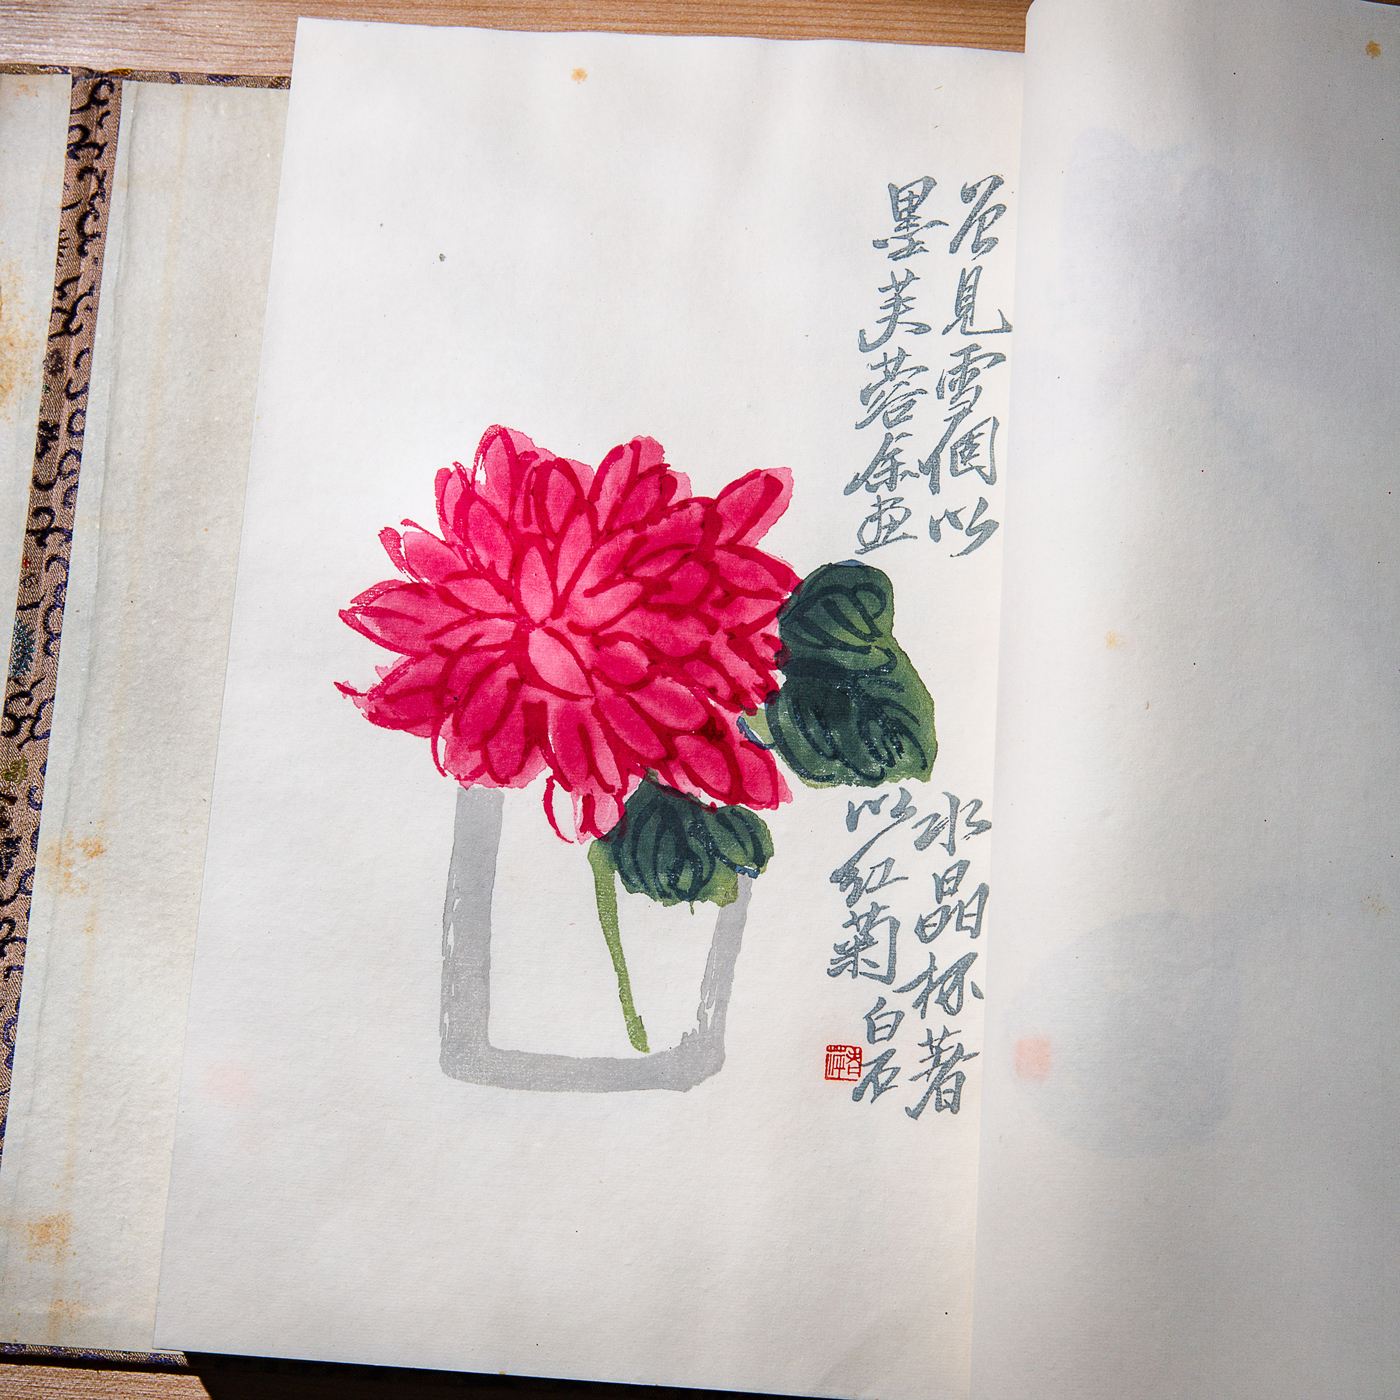 曾見雪個以水晶杯著
墨芙蓉余畫以紅菊白石